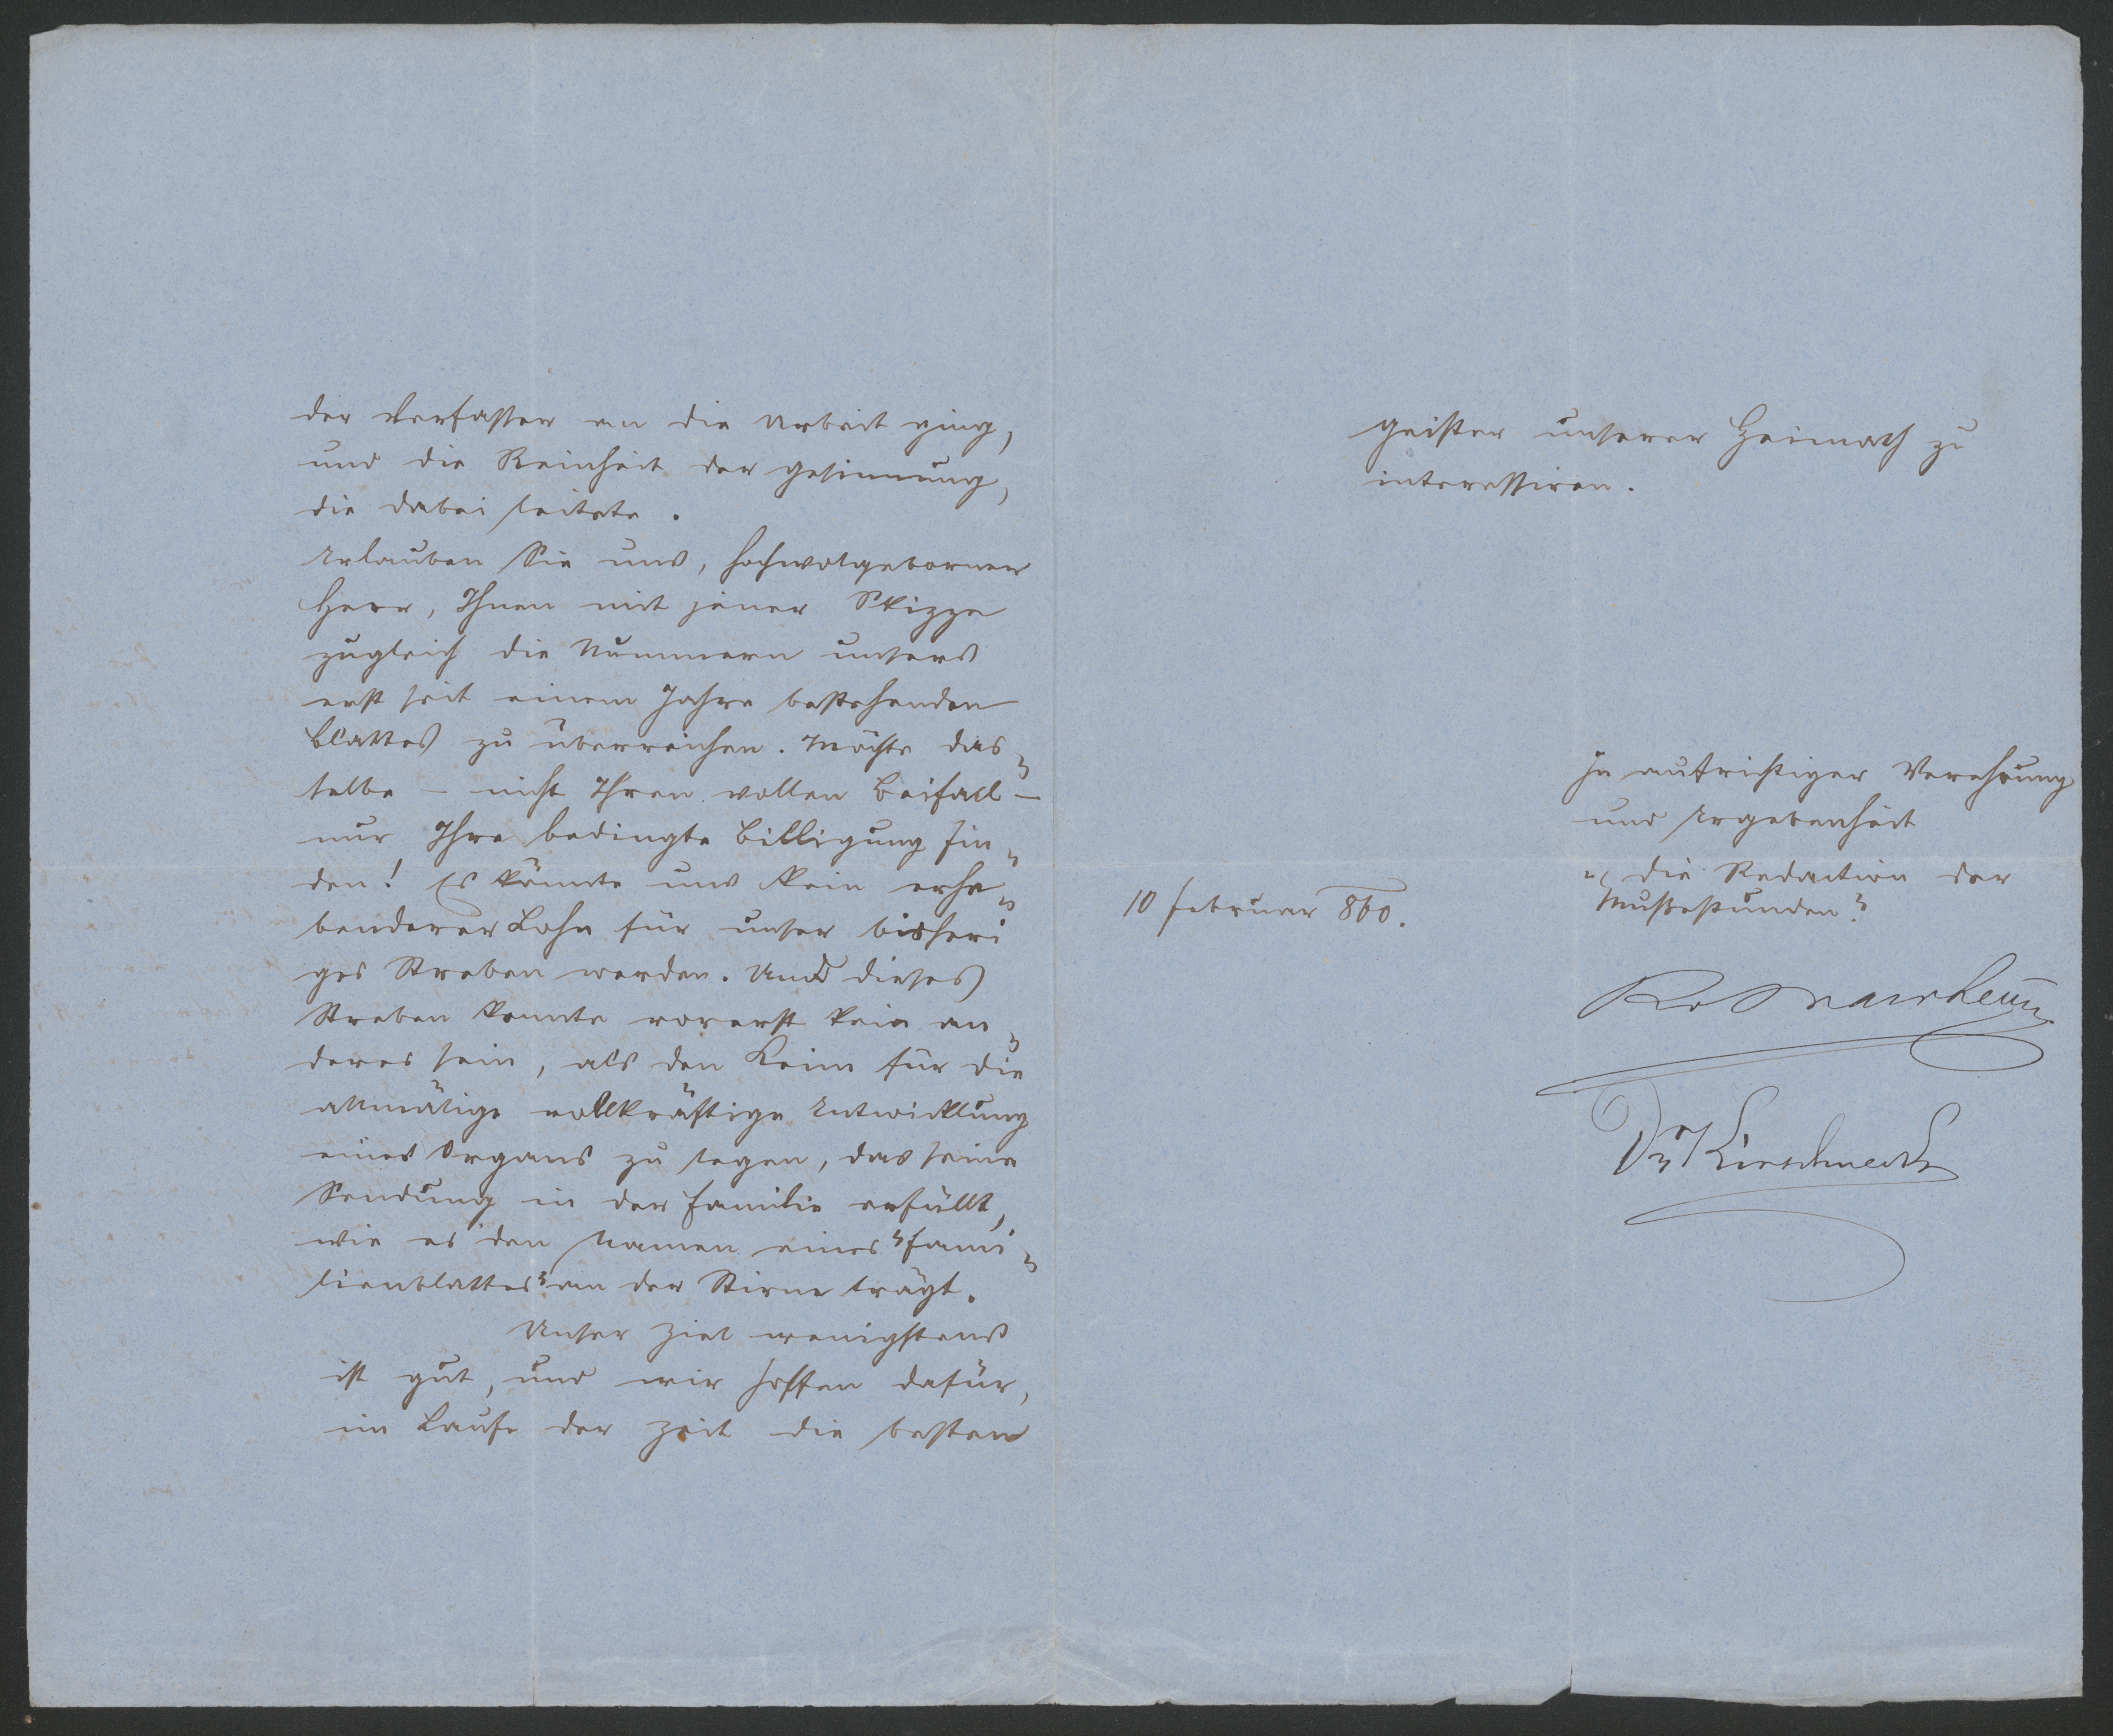 der Verfasser an die Arbeit ging,
und die Reinheit der Gesinnung,
die dabei leitete.
Erlauben Sie uns, hochwolgeborner
Herr, Ihnen mit jener Skizze
zugleich die Nummern unsers
erst seit einem Jahre bestehenden
Blattes zu überreichen. Möchte das„
selbe – nicht Ihren vollen Beifall –
nur Ihre bedingte Billigung fin„
den! Es könnte uns kein erhe„
benderer Lohn für unser bisheri
ges Streben werden. Und dieses
Streben konnte vorerst kein an„
deres sein, als den Keim für die
allmälige vollkräftige Entwicklung
eines Organs zu legen, das seine
Sendung in der Familie erfüllt,
wie es den Namen eines "Fami„
lienblattes" an der Stirne trägt.
Unser Ziel wenigstens
ist gut, und wir hoffen dafür,
im Laufe der Zeit die besten
Geister unserer Heimath zu
interessiren.
In aufrichtiger Verehrung
und Ergebenheit
„die Redaction der
Mußestunden"
10 Februar 860.
Dr Kirschneck